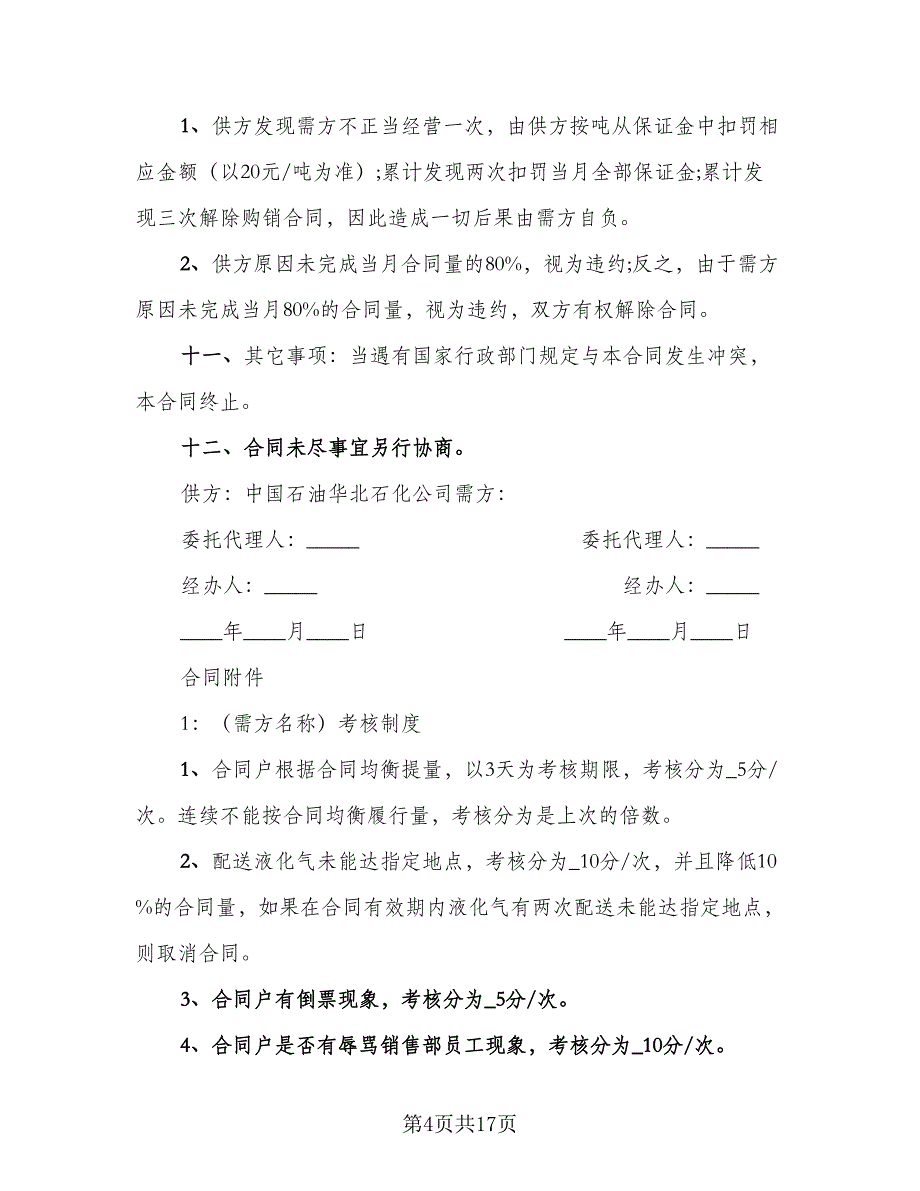 1、供方发现需方不正当经营一次，由供方按吨从保证金中扣罚相
应金额（以20元/吨为准）;累计发现两次扣罚当月全部保证金;累计发
现三次解除购销合同，因此造成一切后果由需方自负。
2、供方原因未完成当月合同量的80%，视为违约;反之，由于需方
原因未完成当月80%的合同量，视为违约，双方有权解除合同。
十一、其它事项：当遇有国家行政部门规定与本合同发生冲突，
本合同终止。
十二、合同未尽事宜另行协商。
供方：中国石油华北石化公司需方：
委托代理人：_____ 委托代理人：_____
经办人：_____ 经办人：_____
____年____月____日 ____年____月____日
合同附件
1：（需方名称）考核制度
1、合同户根据合同均衡提量，以3天为考核期限，考核分为_5分/
次。连续不能按合同均衡履行量，考核分为是上次的倍数。
2、配送液化气未能达指定地点，考核分为_10分/次，并且降低10
%的合同量，如果在合同有效期内液化气有两次配送未能达指定地点，
则取消合同。
3、合同户有倒票现象，考核分为_5分/次。
4、合同户是否有辱骂销售部员工现象，考核分为_10分/次。
第4页共17页